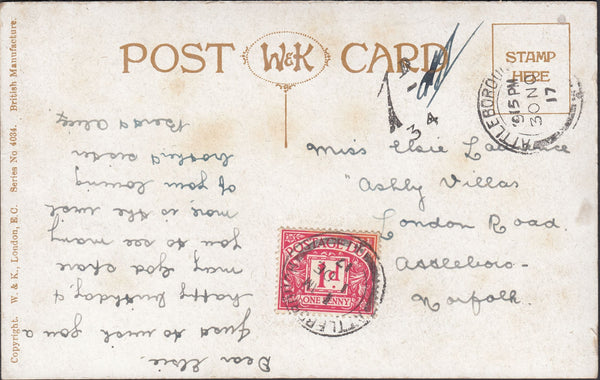 POST W&K CARD
STAMP
HERE
ATTLEBOROU
9.15 PM
30 NO
17
1D
34
Miss Elsie
"Ashly Villas
London Road.
Attleboro-
Norfolk.
POSTAGE DUE
1d
ONE PENNY
Dear Elsie.
Just to wish you a
happy birthday &
may God spare
you to see many
more, is the wish
of your loving
brother & sister
Bert & Alice
Copyright. W. & K., London, E.C. Series No 4034. British Manufacture.